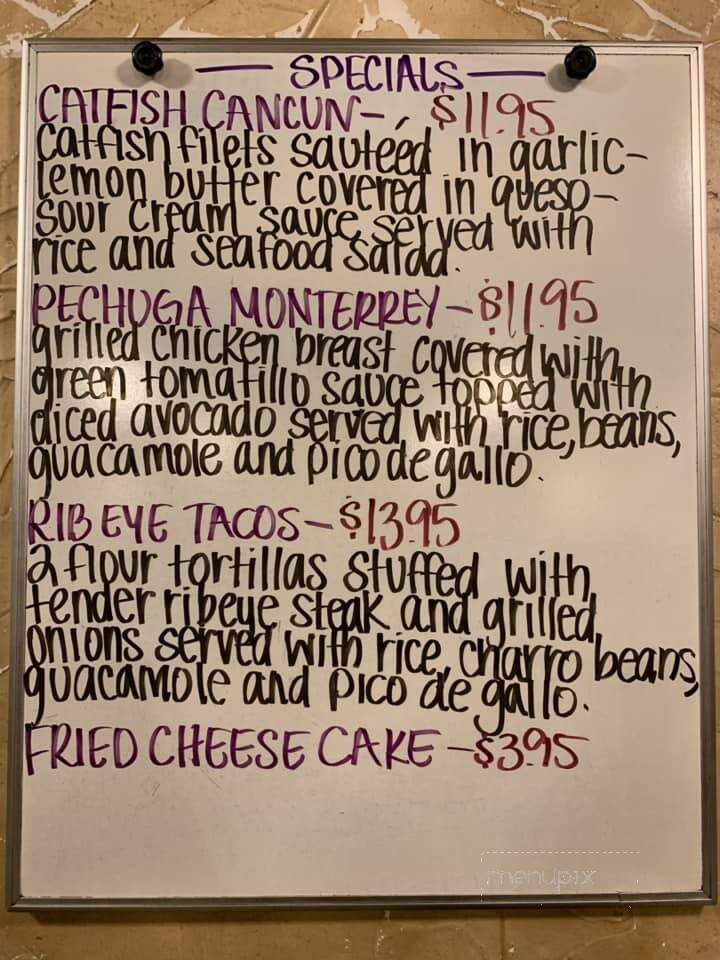 SPECIALS
CATFISH CANCUN- $11.95
catfish filets sautéed in garlic-
lemon butter covered in queso-
sour cream sauce served with
rice and seafood salad.
PECHUGA MONTERREY-$11.95
grilled chicken breast covered with
green tomatillo sauce topped with
diced avocado served with rice, beans,
guacamole and pico de gallo.
RIB EYE TACOS-$13.95
2 flour tortillas stuffed with
tender ribeye steak and grilled
onions served with rice, charro beans,
guacamole and pico de gallo.
FRIED CHEESE CAKE-$3.95
menupix